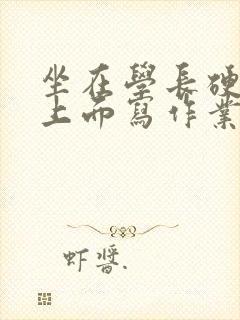 坐在學長硬
上面寫作業
虾醬.